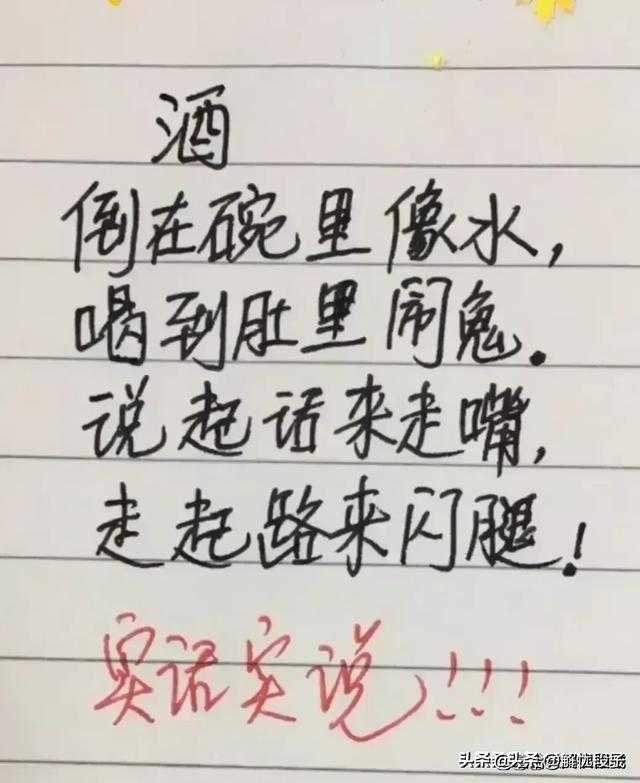 酒
倒在碗里像水，
喝到肚里闹鬼.
说起话来走嘴，
走起路来闪腿！
实话实说！！！
头条